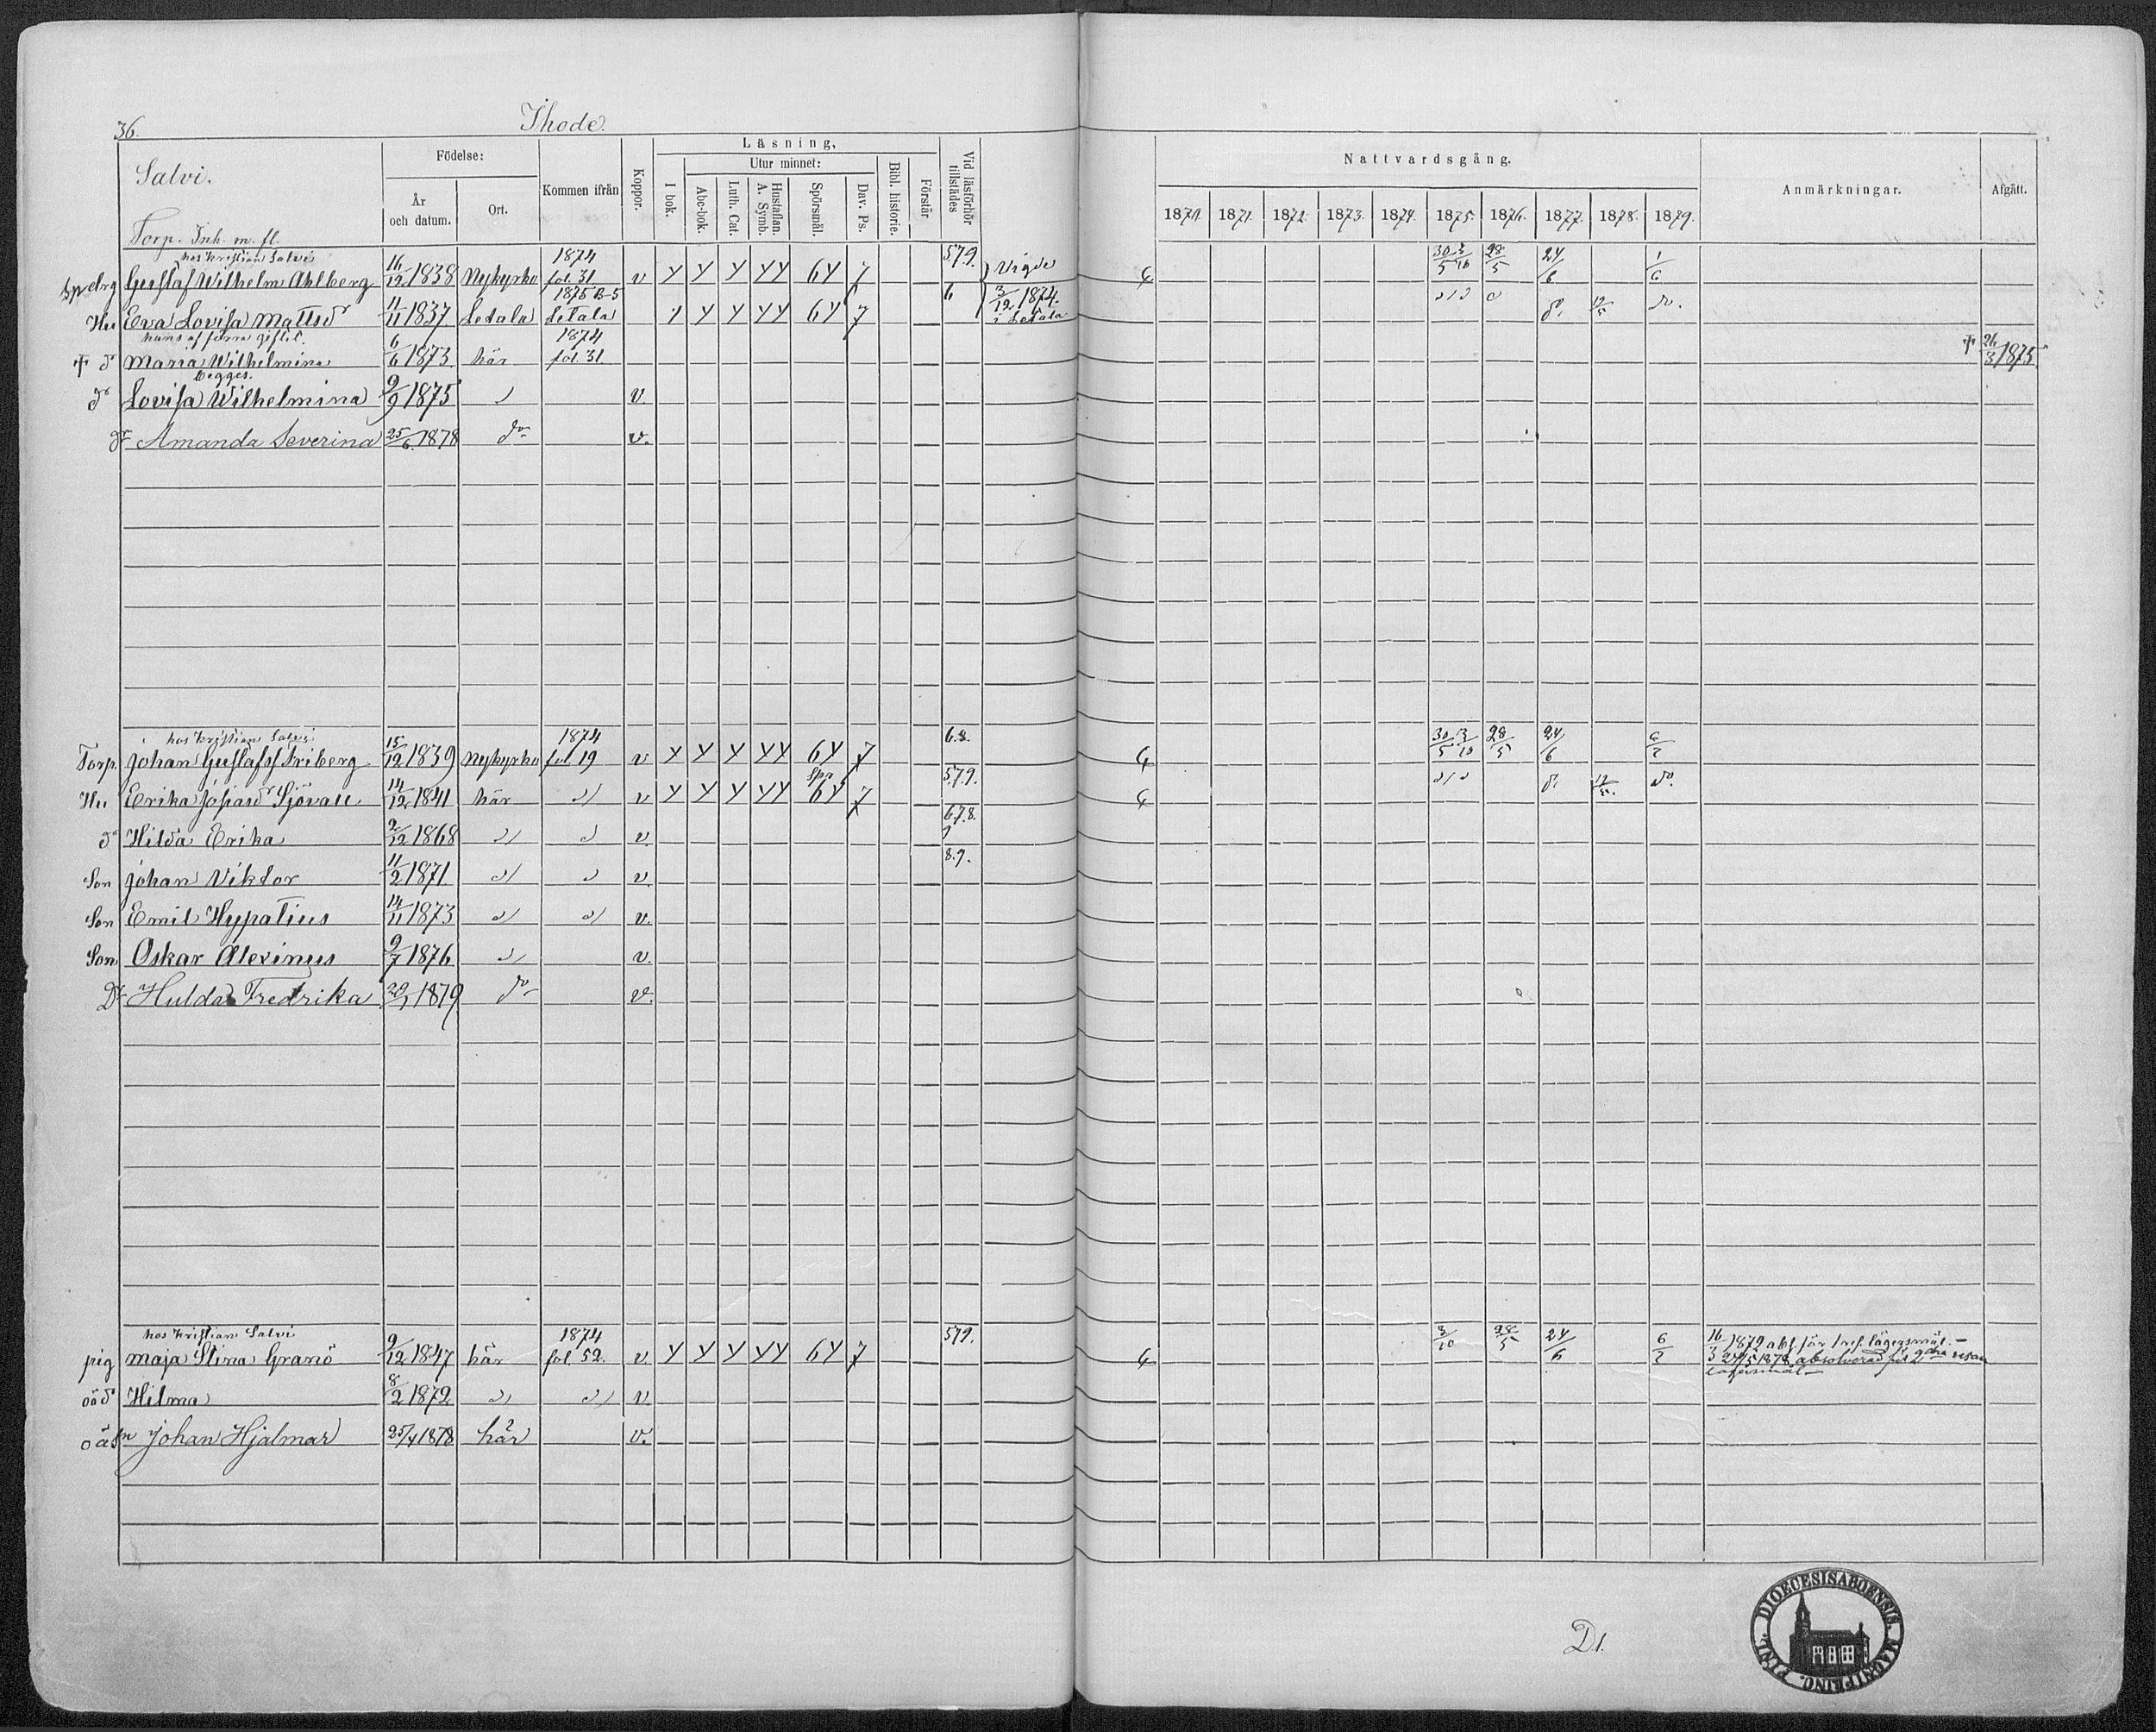 36.
Ihode.
Salvi.
Torp. Inh. m. fl.
Födelse:
År och datum.
Ort.
Kommen ifrån
Koppor.
Läsning,
I bok.
Utur minnet:
Abc-bok.
Luth. Cat.
Hustaflan. A. Symb.
Spörsmål.
Dav. Ps.
Bibl. historie.
Förstår
Vid läsförhör tillstädes
Nattvardsgång.
1870. 1871. 1872. 1873. 1874. 1875. 1876. 1877. 1878. 1879.
Anmärkningar.
Afgått.
hos Kristian Salvi
Gustaf Wilhelm Ahlberg 16/12 1838 Nykyrko 1874 fol. 31. v 64 7 579. Vigde 30/5 3/10 28/5 24/6 1/6
Hu Eva Lovisa Mattsdr 11/11 1837 Letala 1875 B-5 Letala 64 7 6 3/12 1874. i Letala do.
hans af förra giftet.
† d Maria Wilhelmina 6/6 1873. här 1874 fol. 31. † 26/3 1875.
Begges.
dr Lovisa Wilhelmina 9/9 1875 v.
dr Amanda Severina 25/6 1878 do v.
hos Kristian Salvi
Torp. Johan Gustafss Friberg 15/12 1839 Nykyrko 1874 fol 19 v 64 7 6.8. 30/5 3/10 28/5 24/6 6/7
Hu Erika Josiasdr Sjövall 14/12 1841 här v 64 7 579. do.
dr Hilda Erika 2/12 1868 v. 6.7.8. 9
Son Johan Viktor 11/2 1871. v. 8.9.
Son Emil Hypatius 14/11 1873 v.
Son Oskar Alexinus 9/7 1876 v.
Dr Hulda Fredrika 1879 do v.
hos Kristian Salvi
pig Maja Stina Granö 9/12 1847 här 1874 fol. 52. v 64 7 579. 3/10 28/5 24/6 6/7 16/3 1872 abs. för 1 res. lägersmål. –
1878 absolverad för 2dra resan
lägersmål –
oäd Hilma 8/2 1872 v
oäsn Johan Hjalmar 25/4 1878 här v.
D1.
DIOECESIS ABOENSIS. MAGNI PRINC. FINL.